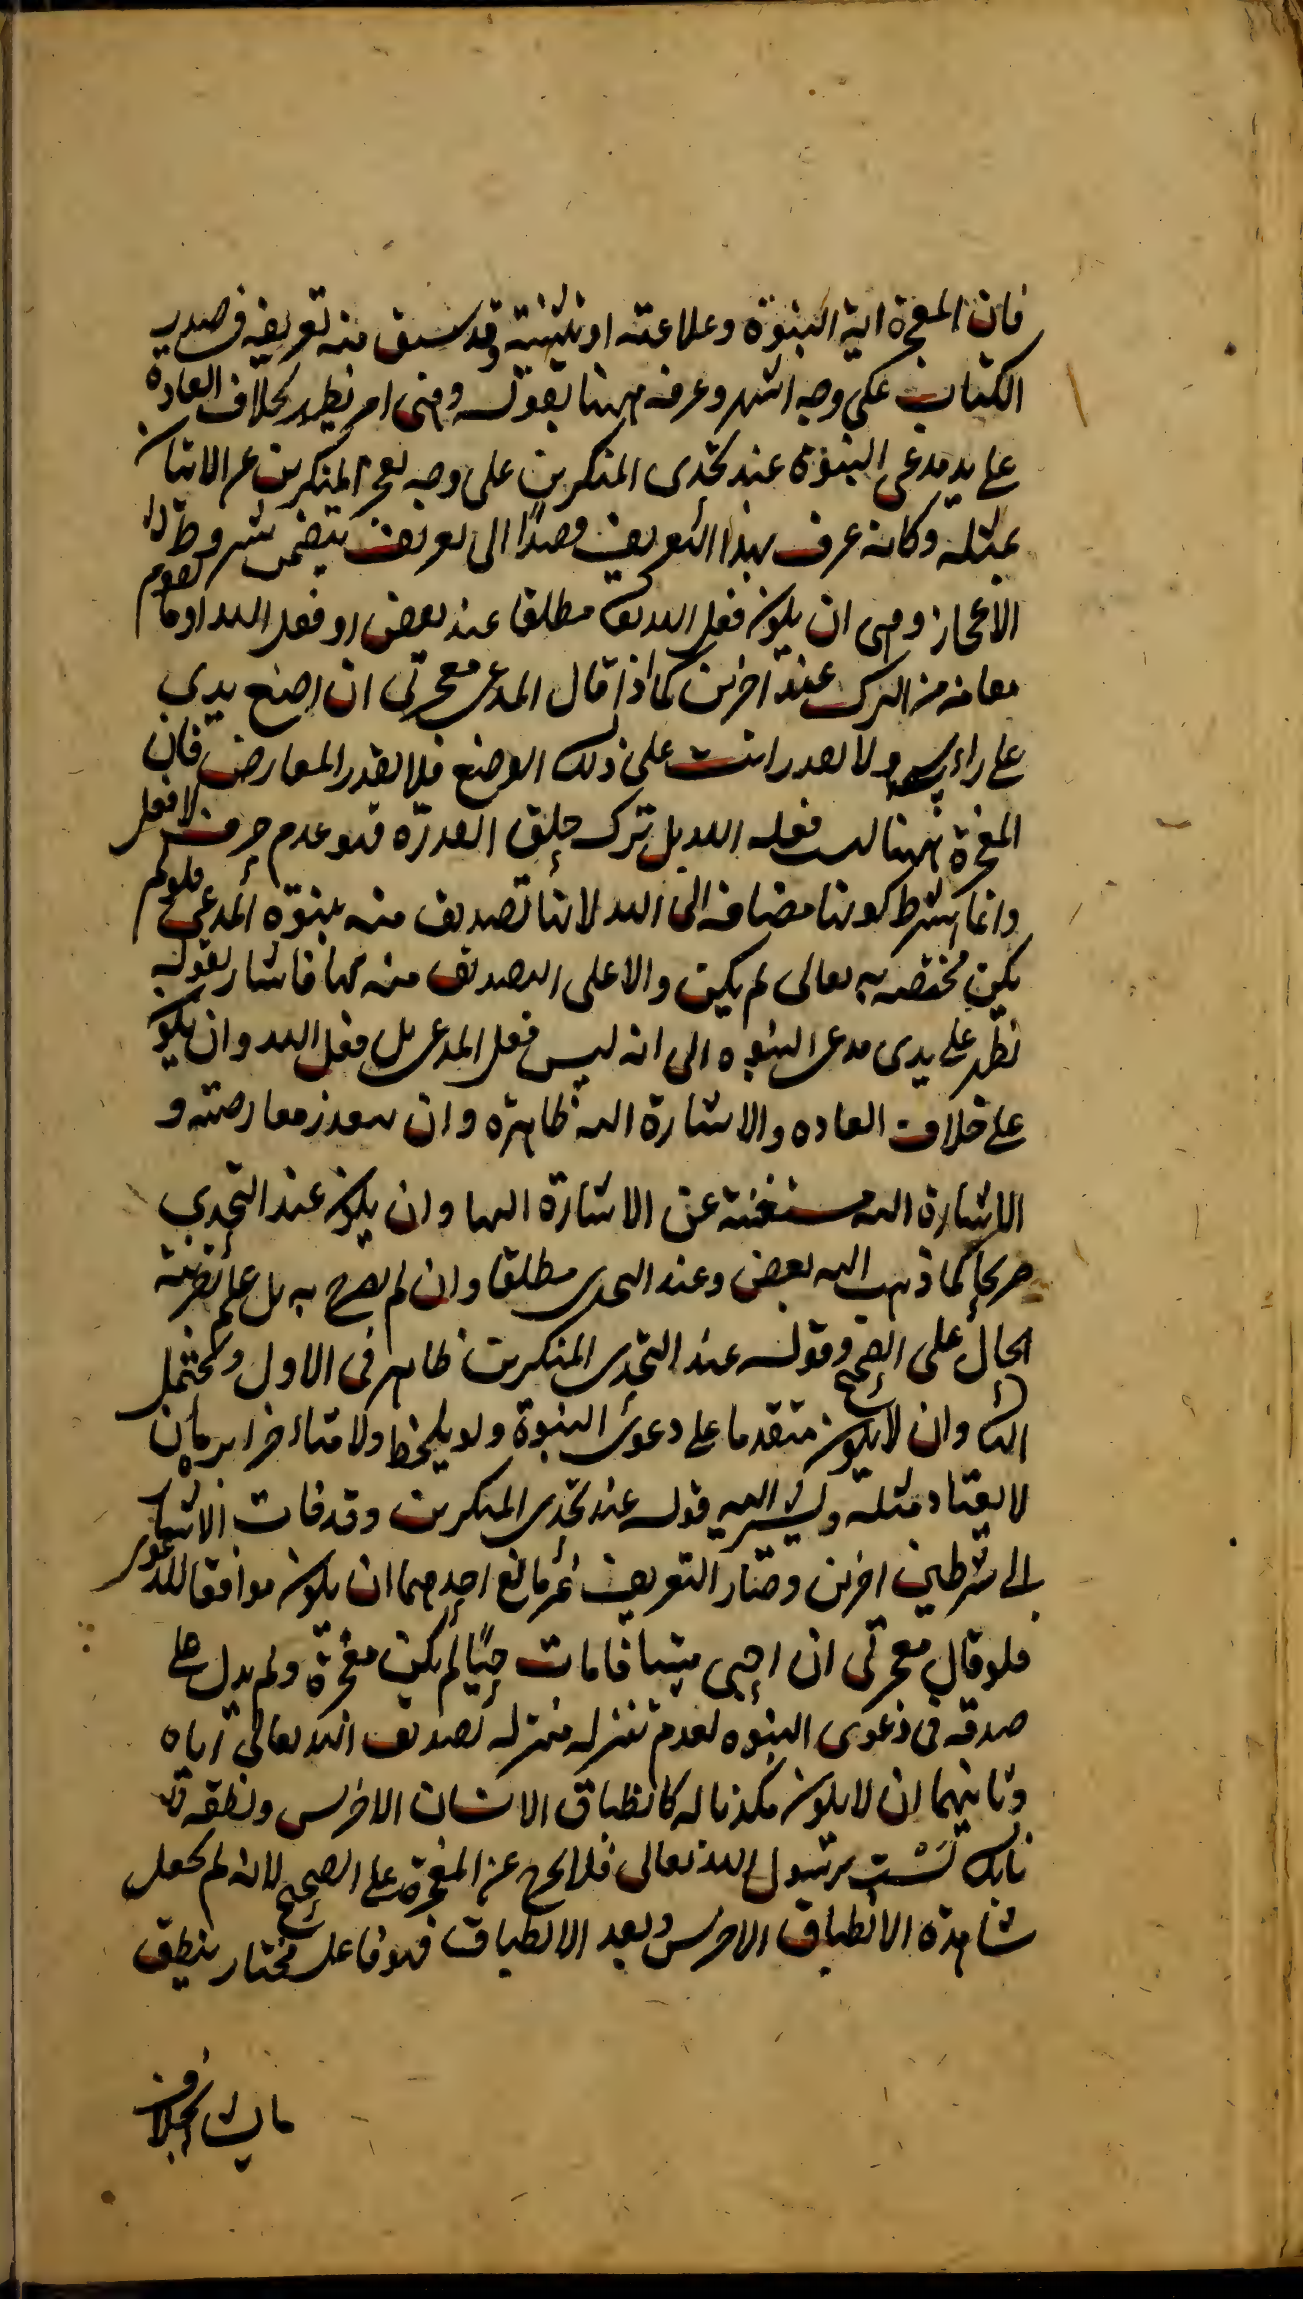 فان المعجزة اية النبوة وعلامته او تثبته وقد سبق منه تعريفه في صدر
الكتاب على وجه اشهر وعرفه ههنا بقوله وهى امر يظهر بخلاف العادة
على يد مدعى النبوة عند تحدى المنكرين على وجه يعجز المنكرين عن الاتيان
بمثله وكانه عرف بهذا التعريف قصدًا الى تعريف يتضمن شروط
الاعجاز وهى ان يكون فعل الله تعالى مطلقا عند بعض او فعل الله او ما يقوم
مقامه من الترك عند اخرين كما اذا قال المدعى معجزتى ان اضع يدى
على راسى ولا تقدر انت على ذلك الوضع فلا يقدر المعارض فان
المعجزة ههنا ليست فعله الله بل ترك خلق القدرة فهو عدم صرف لا فعل
وانما يشترط كونها مضافه الى الله لانها تصديق منه بنبوة المدعى فلو لم
يكن مختصه به تعالى لم يكن دالا على التصديق منه بها فاشار بقوله
يظهر على يدى مدعى النبوه الى انه ليس فعل المدعى بل فعل الله وان يكون
على خلاف العاده والاشارة اليه ظاهره وان يتعذر معارضته و
الاشارة اليه مستغنية عن الاشارة اليها وان يكون عند التحدى
صريحا كما ذهب اليه بعض وعند التحدى مطلقا وان لم يصرح به بل علم بقرينة
الحال على الصحيح وقوله عند التحدى المنكرين ظاهر فى الاول ويحتمل
الثانى وان لا يكون متقدما على دعوى النبوة ولو بلحظة ولا متاخرا بزمان
لا يعتاد مثله ويشير اليه قوله عند تحدى المنكرين وقد فات الاشارة
الى شرطين اخرين وصار التعريف غير مانع احدهما ان يكون موافقا للدعوى
فلو قال معجزتى ان احيى ميتا فامات حيًا لم يكن معجزة ولم يدل على
صدقه فى دعوى النبوه لعدم تنزله منزله تصديق الله تعالى اياه
وثانيهما ان لا يكون مكذبا له كانطباق الانسان الاخرس ونطقه
بانك لَسْتَ برسول الله تعالى فلا يخرج عن المعجزة على الصحيح لانه لم يجعل
شاهده الانطباق الاخرس وبعد الانطباق فهو فاعل مختار ينطق
ما يشاء بخلاف